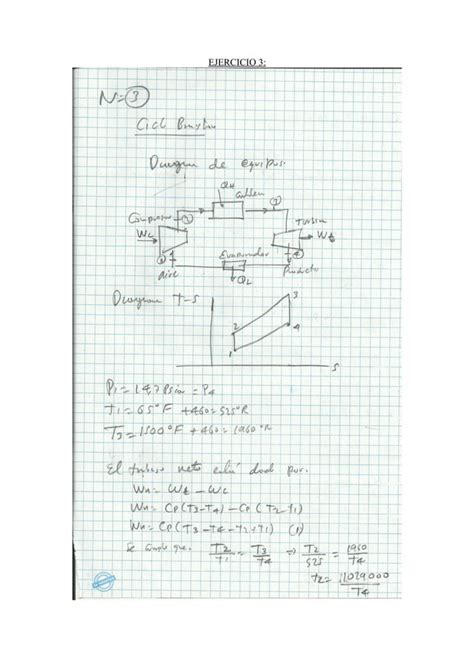 EJERCICIO 3:
N=3
Diagrama de equipos:
QH
Turbina
WC
Wt
Evaporador
aire
Producto
QL
Diagrama T-S
3
2
4
1
S
P1 = 14,7 Psia = P4
T1 = 65°F +460 = 525°R
T3 = 1500°F + 460 = 1960°R
El trabajo neto está dad por.
Wn = Wt - Wc
Wn = CP(T3-T4) - CP (T2-T1)
Wn = CP(T3-T4-T2+T1) (1)
Se que. T2/T1 = T3/T4 ⇒ T2/525 = 1960/T4
T2 = 1029000/T4